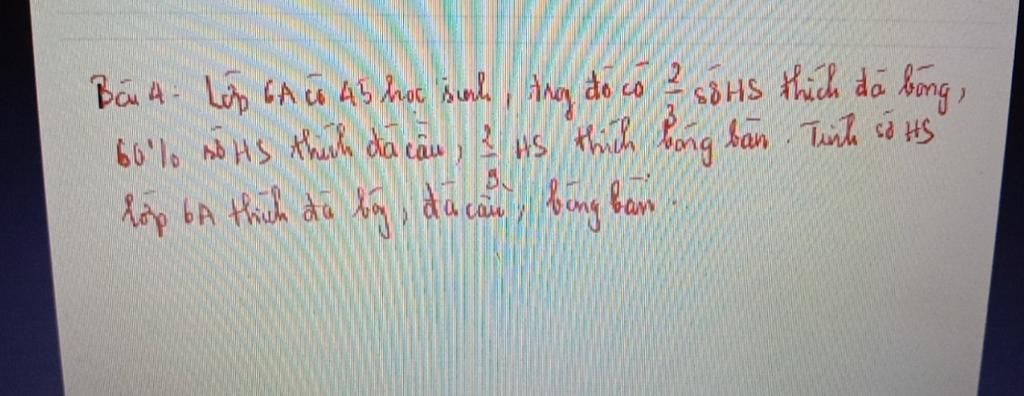 Bài 4: Lớp 6A có 45 học sinh, trog đó có 2/3 số HS thích đá bóng,
60% số HS thích đá cầu, 2/9 HS thích bóng bàn. Tính số HS
lớp 6A thích đá bóg, đá cầu, bóng bàn.